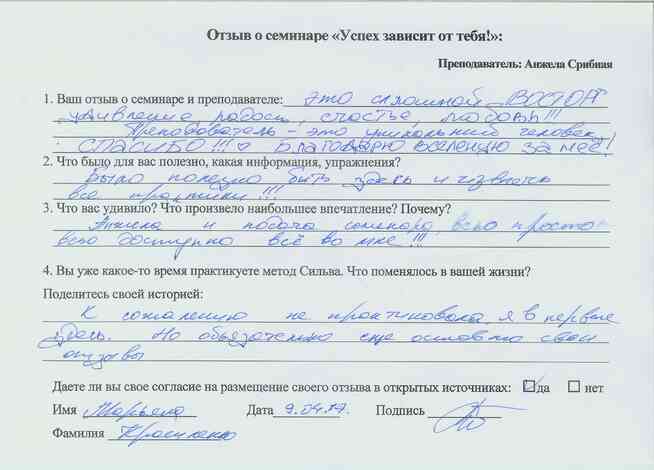 Отзыв о семинаре «Успех зависит от тебя!»:
Преподаватель: Анжела Срибная
1. Ваш отзыв о семинаре и преподавателе: это сплошной ВОСТОРГ
удивление, радость, счастье, любовь!!!
Преподаватель – это уникальный человек,
СПАСИБО!!! ♡ Благодарю Вселенную за неё!
2. Что было для вас полезно, какая информация, упражнения?
Было полезно быть здесь и изучать
все практики!!!
3. Что вас удивило? Что произвело наибольшее впечатление? Почему?
Анжела и подача семинара, всё просто
всё доступно всё во мне!!!
4. Вы уже какое-то время практикуете метод Сильва. Что поменялось в вашей жизни?
Поделитесь своей историей:
К сожалению не практиковала, я в первые
здесь. Но обязательно еще оставлю свои
отзывы
Даете ли вы свое согласие на размещение своего отзыва в открытых источниках: да нет
Имя Марьяна Дата 9.04.17. Подпись
Фамилия